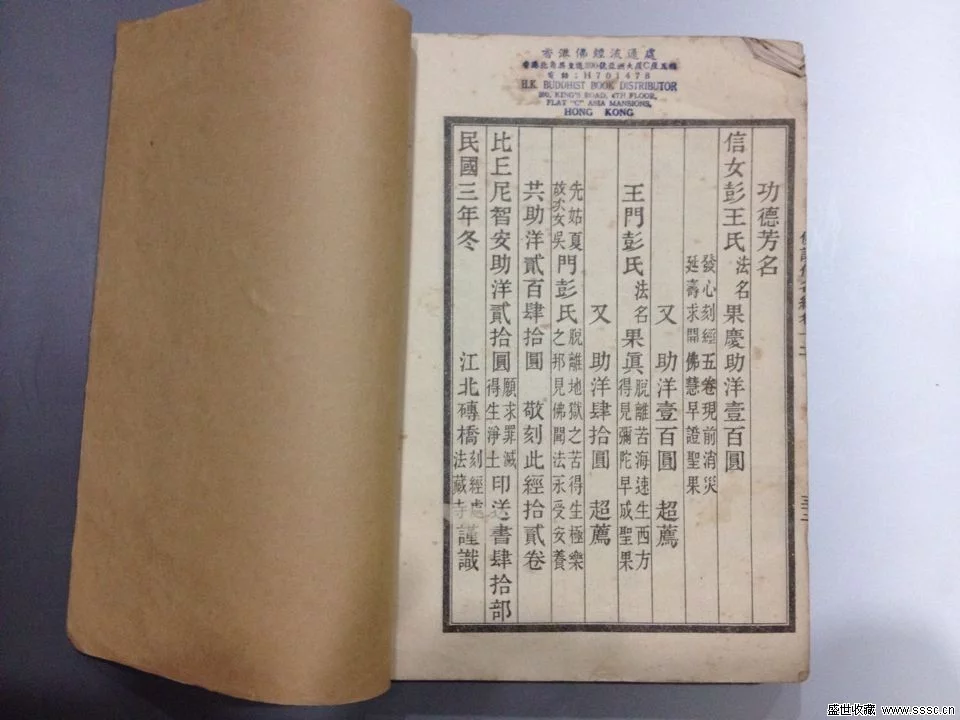 香港佛經流通處
香港北角英皇道390號亞洲大廈C座五樓
電話:H701478
H.K. BUDDHIST BOOK DISTRIBUTOR
390, KING'S ROAD, 4TH FLOOR,
FLAT "C" ASIA MANSIONS,
HONG KONG
功德芳名
信女彭王氏法名果慶助洋壹百圓
發心刻經五卷現前消災
延壽求開佛慧早證聖果
又 助洋壹百圓 超薦
王門彭氏法名果眞脫離苦海速生西方得見彌陀早成聖果
又 助洋肆拾圓 超薦
先姑夏故次女吳門彭氏脫離地獄之苦得生極樂之邦見佛聞法永受安養
共助洋貳百肆拾圓 敬刻此經拾貳卷
比丘尼智安助洋貳拾圓願求罪滅得生淨土印送書肆拾部
民國三年冬 江北磚橋刻經處法藏寺謹識
盛世收藏 www.sssc.cn